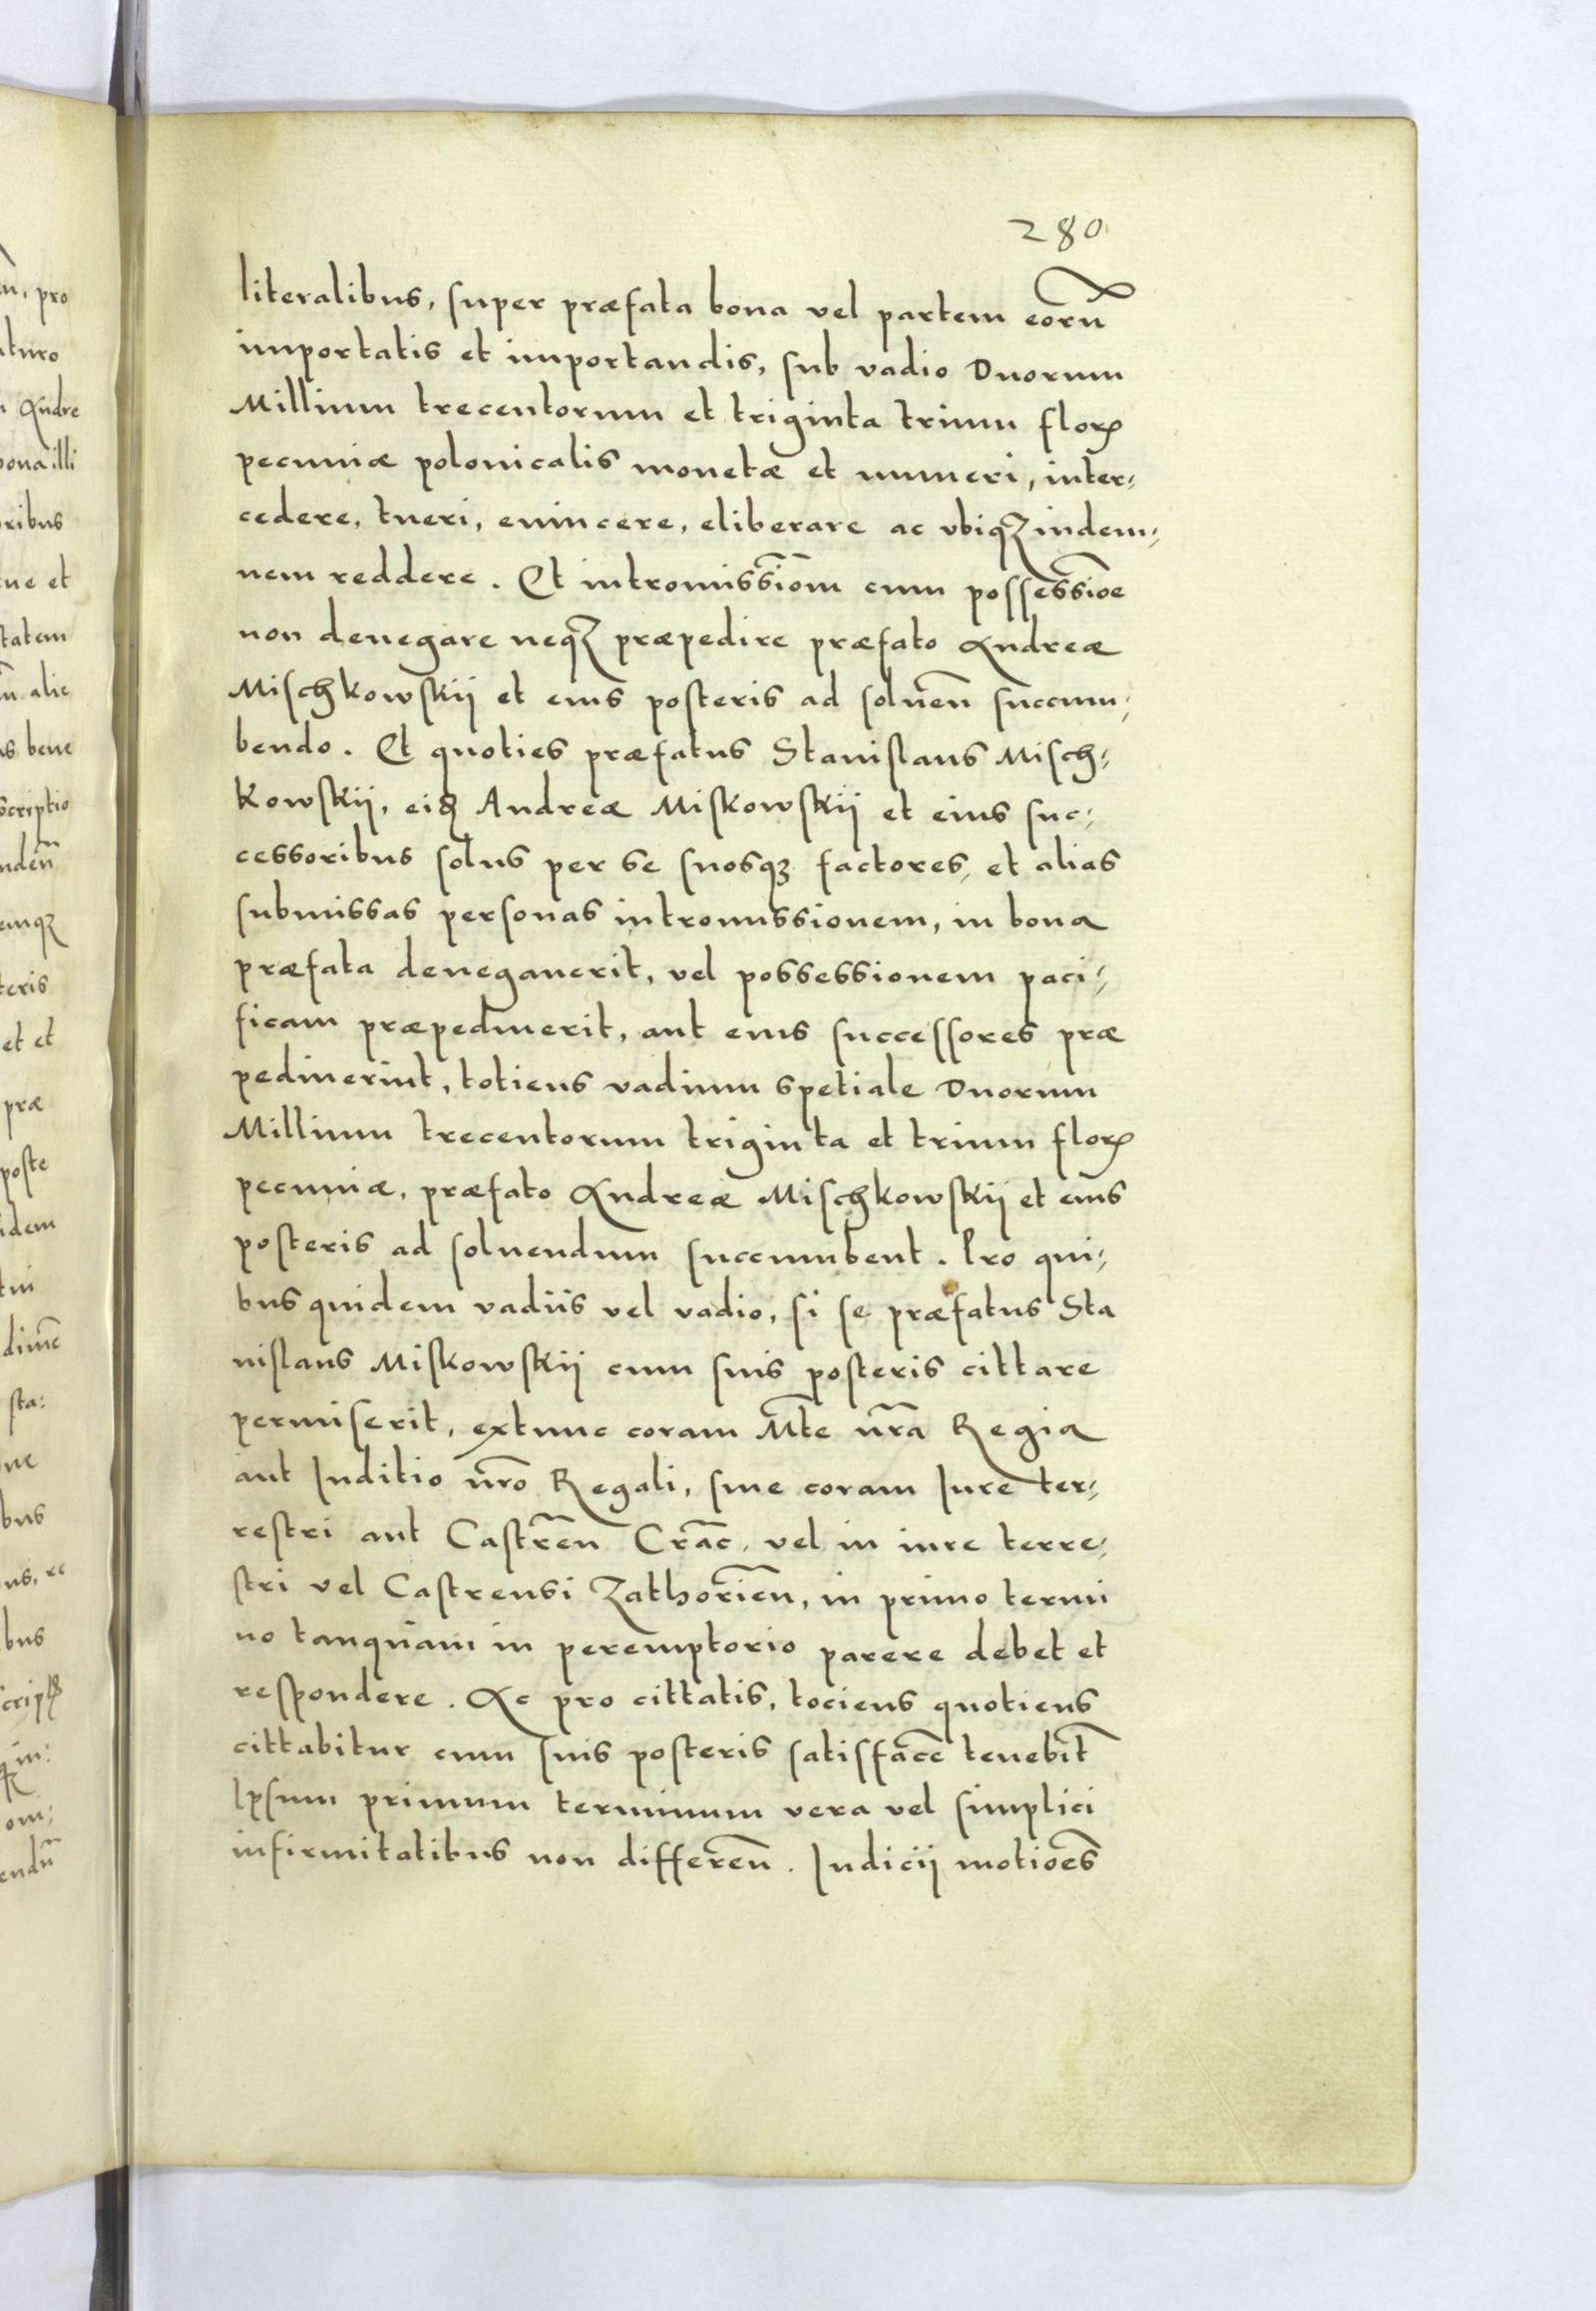 280
literalibus, super præfata bona vel partem eorū
importatis et importandis, sub vadio Duorum
Millium trecentorum et triginta trium floꝝ
pecuniæ polonicalis monetæ et numeri, inter⸗
cedere, tueri, euincere, eliberare ac vbiqꝫ indem⸗
nem reddere. Et intromissiōm cum possessiōe
non denegare neqꝫ præpedire præfato Andreæ
Mischkowskij et eius posteris ad soluēn succum⸗
bendo. Et quoties præfatus Stanislaus Misch⸗
kowskij, eiꝫ Andreæ Miskowskij et eius suc⸗
cessoribus solus per se suosqꝫ factores, et alias
submissas personas intromissionem, in bona
præfata denegauerit, vel possessionem paci⸗
ficam præpediuerit, aut eius successores præ
pediuerint, totiens vadium spetiale Duorum
Millium trecentorum triginta et trium floꝝ
pecuniæ, præfato Andreæ Mischkowskij et eius
posteris ad soluendum succumbent. Pro qui⸗
bus quidem vadiis vel vadio, si se præfatus Sta
nislaus Miskowskij cum suis posteris cittare
permiserit, extunc coram M̄te n̄ra Regia
aut Iuditio n̄ro Regali, siue coram Iure ter⸗
restri aut Castr̄en Crāc, vel in iure terre⸗
stri vel Castrensi Zathoriēn, in primo termi
no tanquam in peremptorio parere debet et
respondere. Ac pro cittatis, tociens quotiens
cittabitur cum suis posteris satisfacē tenebit̄
Ipsum primum terminum vera vel simplici
infirmitatibus non differēn. Iudicij motiōes